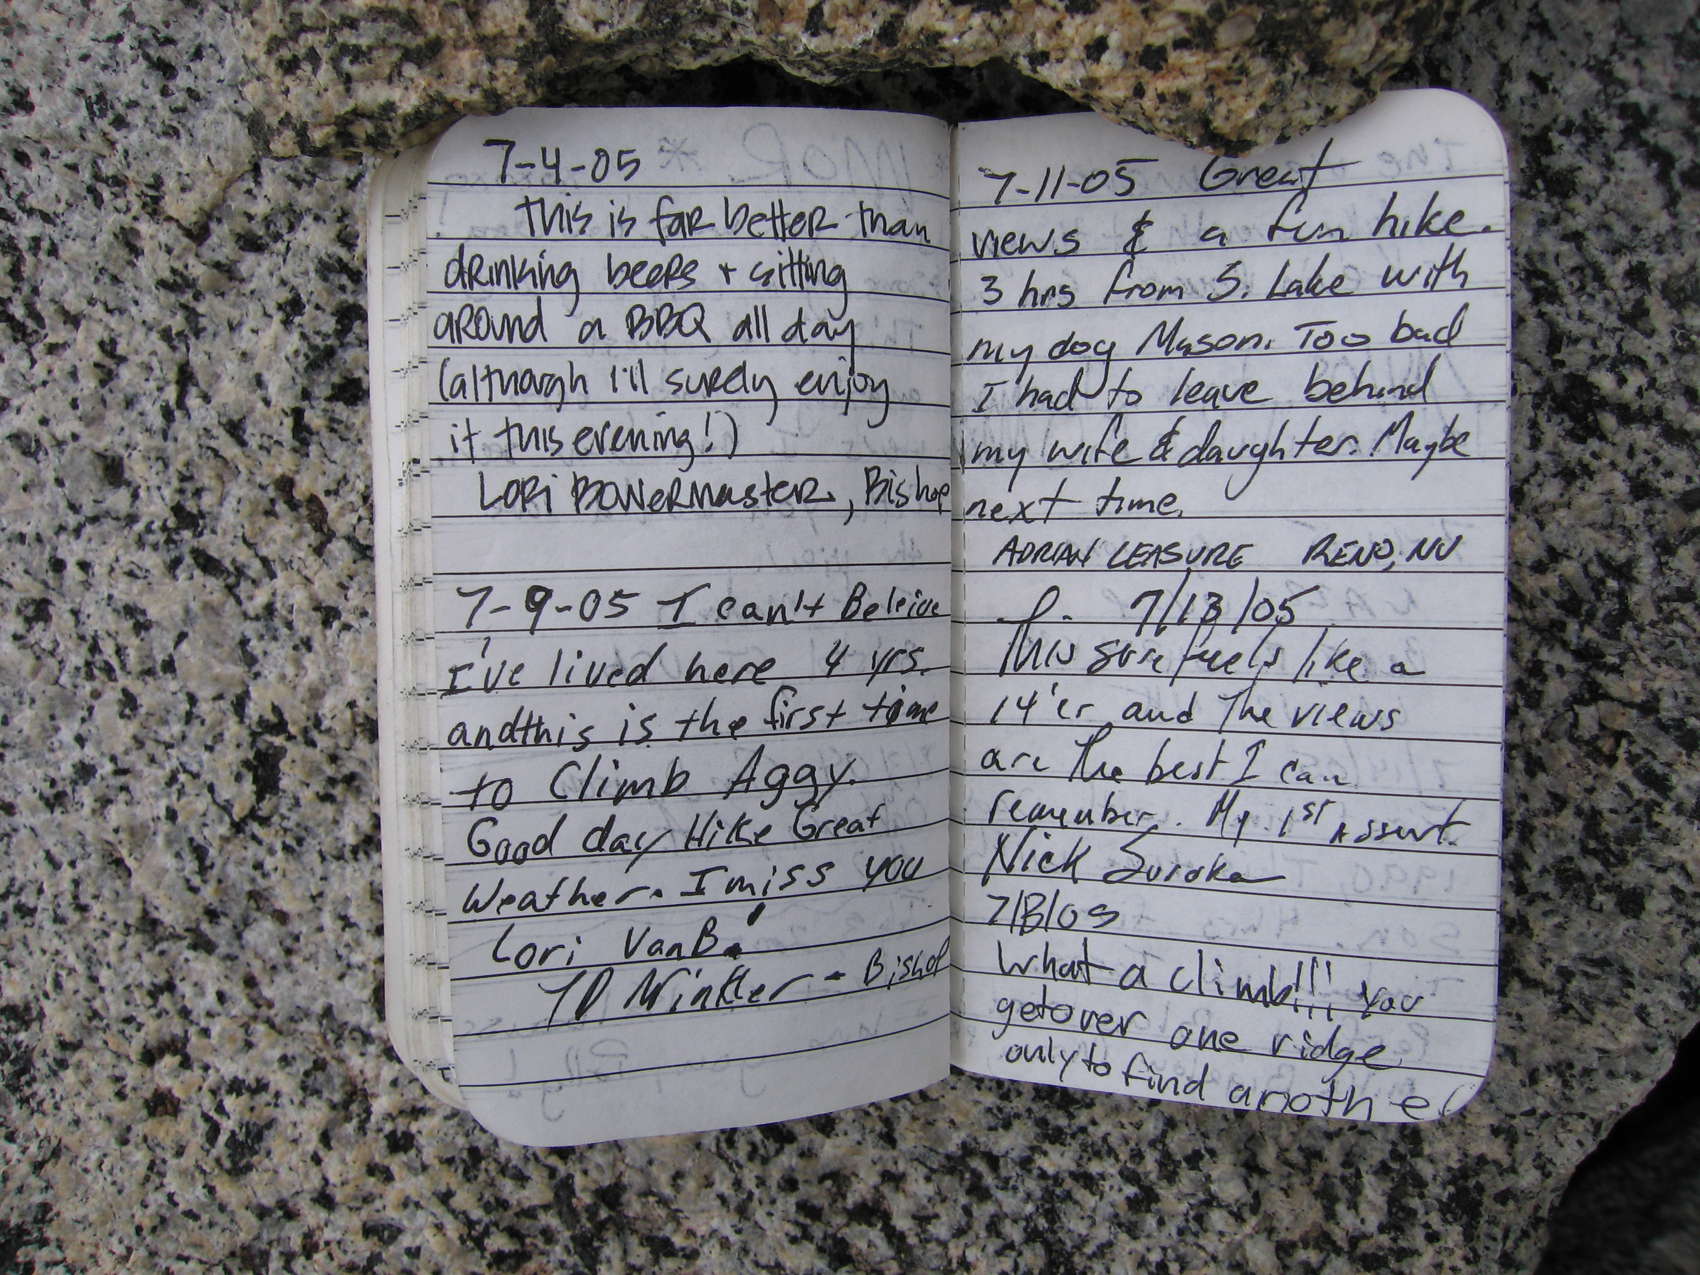 7-4-05
This is far better than
drinking beers + sitting
around a BBQ all day
(although I'll surely enjoy
it this evening!)
Lori Bowermaster, Bishop
7-9-05 I can't Beleive
I've lived here 4 yrs.
and this is the first time
to Climb Aggy.
Good day Hike Great
Weather. I miss you
Lori VanB.
- Bishop
7-11-05 Great
views & a fun hike.
3 hrs from S. Lake with
my dog Mason. Too bad
I had to leave behind
my wife & daughter. Maybe
next time.
ADRIAN LEASURE RENO, NV
7/13/05
This sure feels like a
14'er and the views
are the best I can
remember. My 1st Assent.
Nick
7/13/05
What a climb!!! You
get over one ridge
only to find another